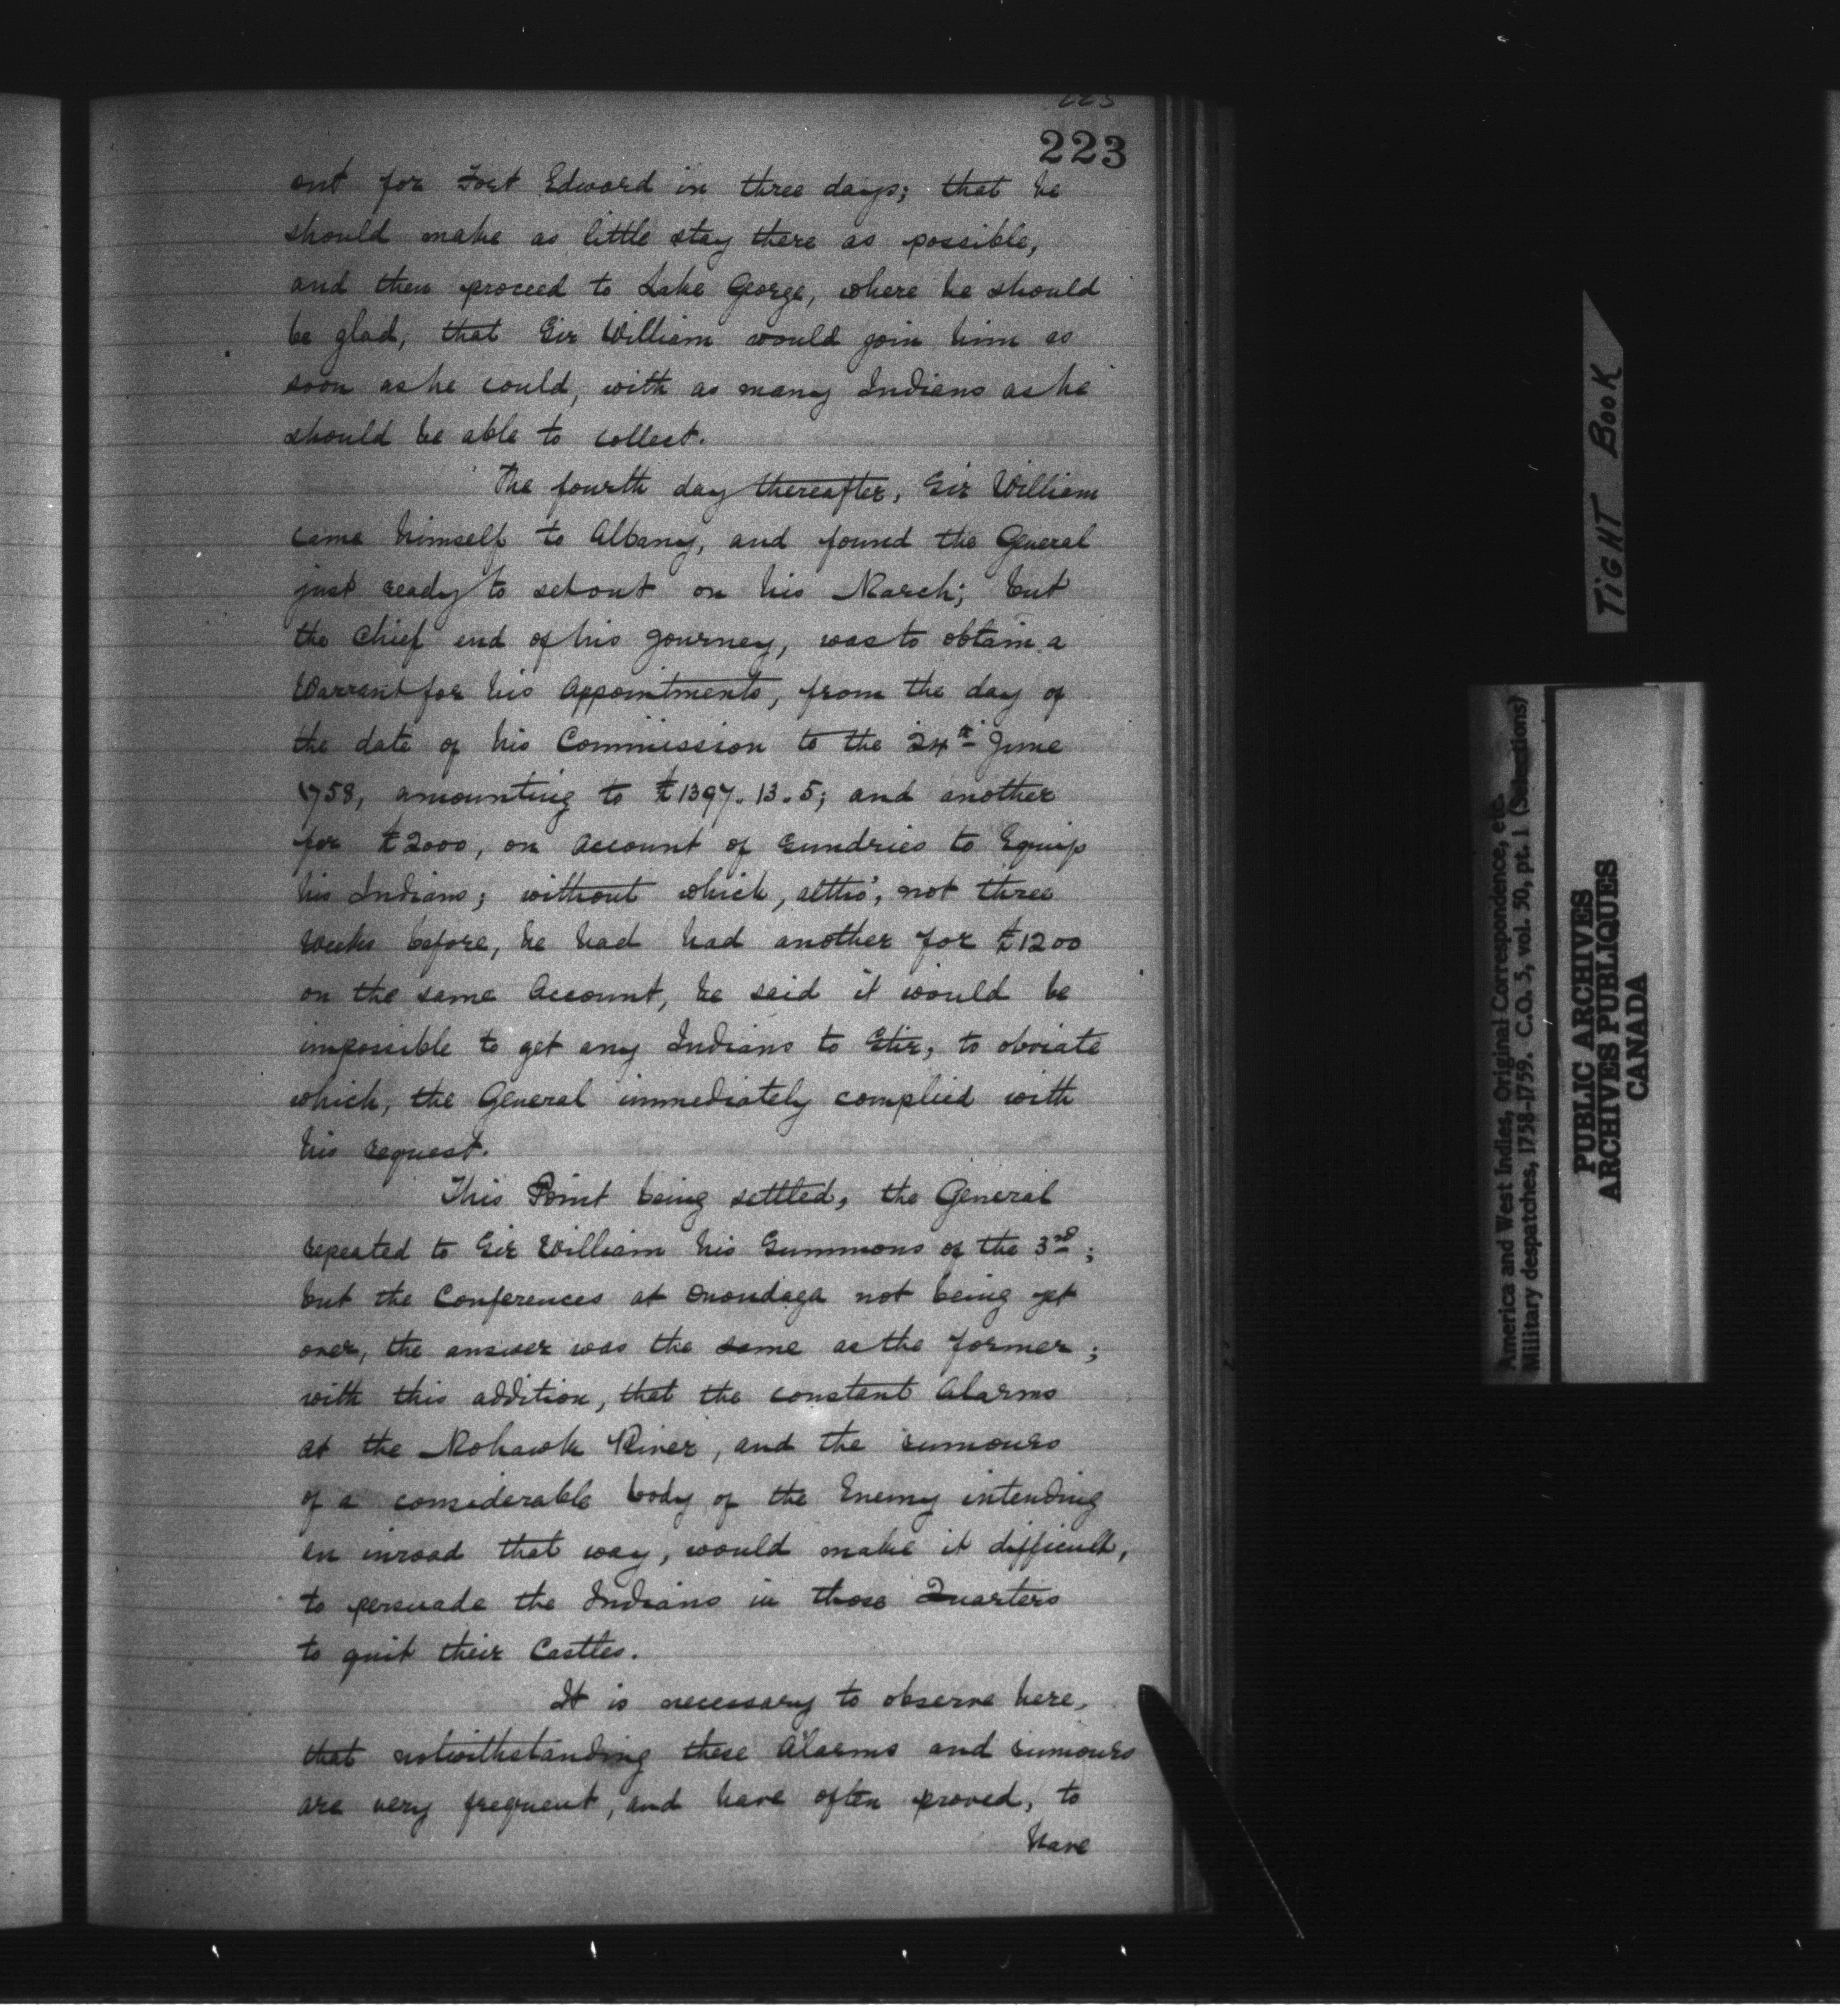 223
out for Fort Edward in three days; that he
should make as little stay there as possible,
and then proceed to Lake George, where he should
be glad, that Sir William would join him as
soon as he could, with as many Indians as he
should be able to collect.
The fourth day thereafter, Sir William
came himself to Albany, and found the General
just ready to set out on his March; but
the Chief end of his Journey, was to obtain a
Warrant for his Appointments, from the day of
the date of his Commission to the 24th June
1758, amounting to £1397.13.5; and another
for £2000, on Account of Sundries to Equip
his Indians; without which, altho', not three
Weeks before, he had had another for £1200
on the same Account, he said it would be
impossible to get any Indians to Stir, to obviate
which, the General immediately complied with
his request.
This Point being settled, the General
repeated to Sir William his Summons of the 3rd;
but the Conferences at Onondaga not being yet
over, the answer was the same as the former;
with this addition, that the constant Alarms
at the Mohawk River, and the rumours
of a considerable body of the Enemy intending
an inroad that way, would make it difficult,
to persuade the Indians in those Quarters
to quit their Castles.
It is necessary to observe here,
that notwithstanding these Alarms and rumours
are very frequent, and have often proved, to
have
TIGHT BOOK
America and West Indies, Original Correspondence, etc.
Military despatches, 1758-1759. C.O. 5, vol. 50, pt. 1 (Selections)
PUBLIC ARCHIVES
ARCHIVES PUBLIQUES
CANADA